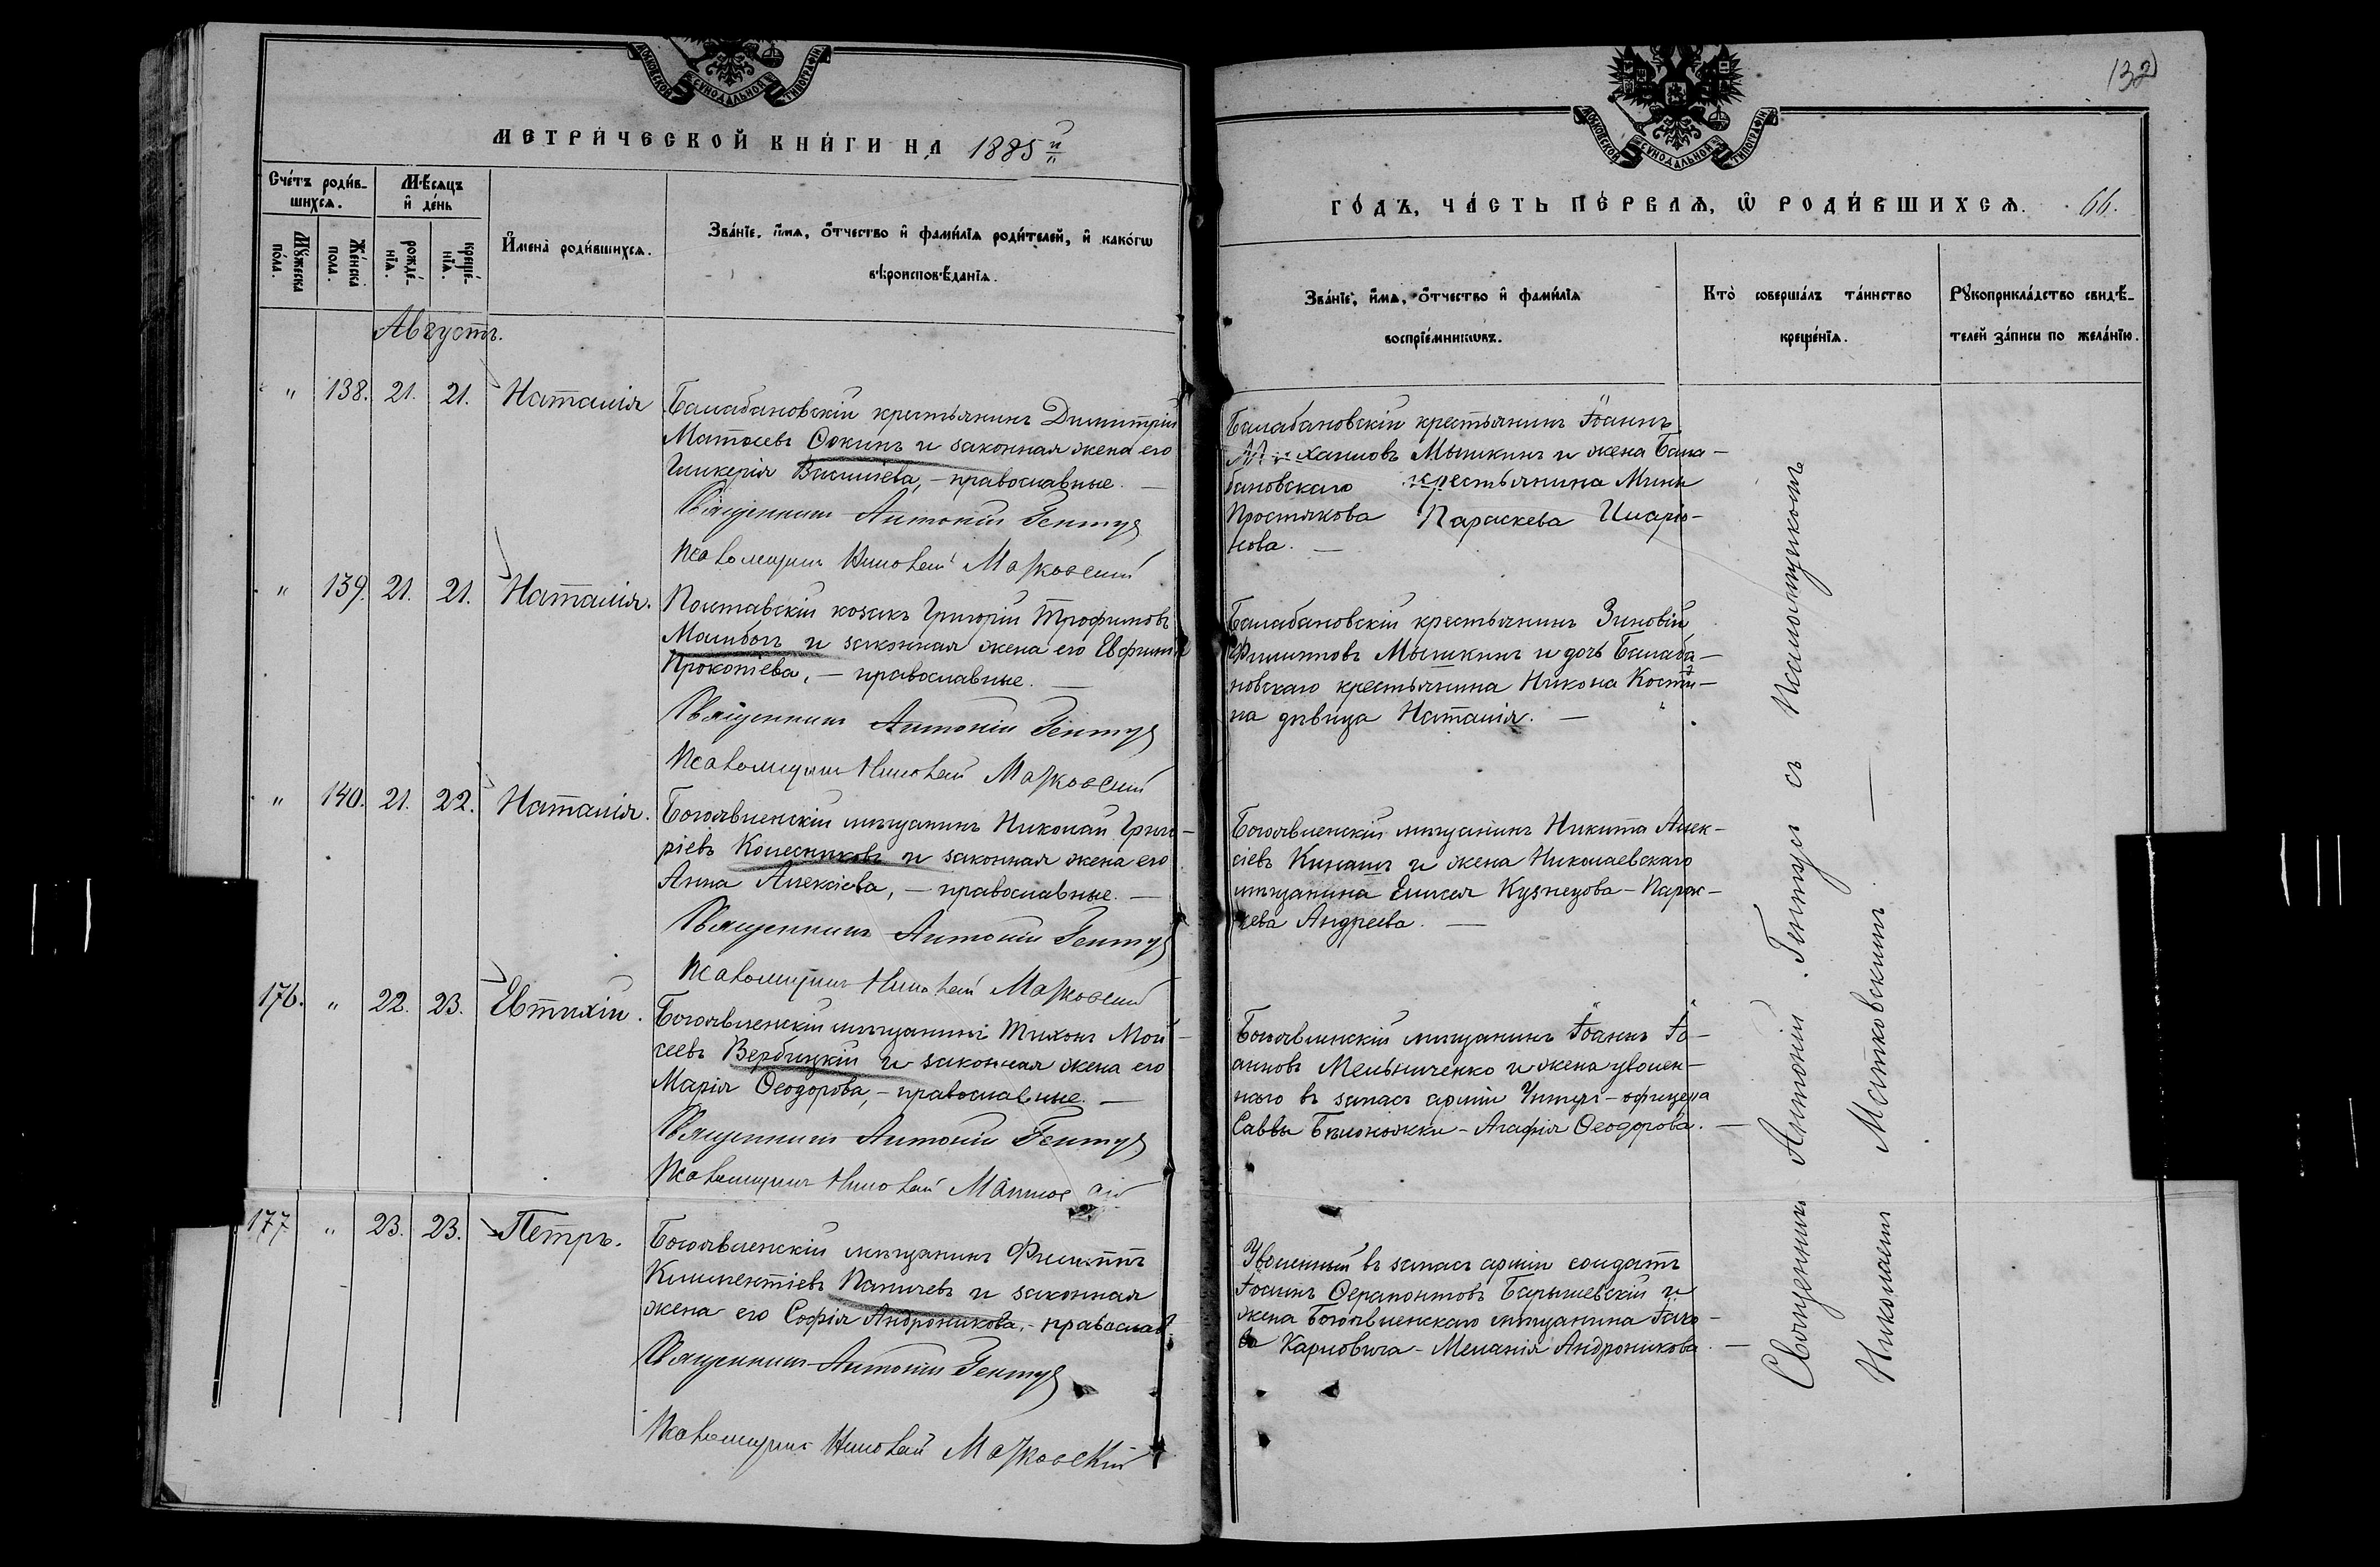 МОСКОВСКОЙ СѴНОДАЛЬНОЙ ТИПОГРАФІИ
МЕТРИ́ЧЕСКОЙ КНИ́ГИ НА 1885й
Сче́тъ роди́в-
шихсѧ.
Мѣ́сѧцъ
и҆ де́нь
Мꙋ́жеска
по́ла.
Же́нска
пола.
рожде́-
нїѧ.
креще́-
нїѧ.
И҆мена̀ роди́вшихсѧ.
Зва́нїе, и҆́мѧ, ѻ҆́тчество и҆ фами́лїѧ роди́телей, и҆ како́гѡ
вѣроисповѣ́данїѧ.
Августъ.
" 138. 21. 21. Наталія
Балабановскій крестьянинъ Димитрій
Матѳеевъ Ѳокинъ и законная жена его
Гликерія Василіева, – православные. –
Священникъ Антоній Гентуръ
Псаломщикъ Николай Матковскій
" 139. 21. 21. Наталія.
Полтавскій козакъ Григорій Трофимовъ
Малибогъ и законная жена его Евфимія
Прокопіева, – православные. –
Священникъ Антоній Гентуръ
Псаломщикъ Николай Матковскій
" 140. 21. 22. Наталія.
Богоявленскій мѣщанинъ Николай Григо-
ріевъ Колесниковъ и законная жена его
Анна Алексіева, – православные. –
Священникъ Антоній Гентуръ
Псаломщикъ Николай Матковскій
176. " 22. 23. Евтихій.
Богоявленскій мѣщанинъ Тихонъ Мой-
сеевъ Вербицкій и законная жена его
Марія Ѳеодорова, – православные. –
Священникъ Антоній Гентуръ
Псаломщикъ Николай Матковскій
177 " 23. 23. Петръ.
Богоявленскій мѣщанинъ Филиппъ
Климентіевъ Папичевъ и законная
жена его Софія Андроникова, – православ.
Священникъ Антоній Гентуръ
Псаломщикъ Николай Матковскій
132
МОСКОВСКОЙ СѴНОДАЛЬНОЙ ТИПОГРАФІИ
ГО́ДЪ, ЧА́СТЬ ПЕ́РВАѦ, Ѡ҆ РОДИ́ВШИХСѦ. 66.
Зва́нїе, и҆́мѧ, ѻ҆́тчество и҆ фами́лїѧ
воспрїе́мникѡвъ.
Кто̀ соверша́лъ та́инство
креще́нїѧ.
Рꙋкоприкла́дство свидѣ́-
телей за́писи по жела́нїю.
Балабановскій крестьянинъ Іоаннъ
Михаиловъ Мышкинъ и жена Бала-
бановскаго крестьянина Мины
Простякова Параскева Иларіо-
нова. –
Балабановскій крестьянинъ Зиновій
Филипповъ Мышкинъ и дочь Балаба-
новскаго крестьянина Никона Кости-
на дѣвица Наталія. –
Богоявленскій мѣщанинъ Никита Алек-
сіевъ Кинашъ и жена Николаевскаго
мѣщанина Елисея Кузнецова – Парас-
кева Андреева. –
Богоявленскій мѣщанинъ Іоаннъ Іо-
анновъ Мельниченко и жена уволен-
наго въ запасъ арміи Унтеръ-офицера
Саввы Бѣлоножки – Агафія Ѳеодорова. –
Уволенный въ запасъ арміи солдатъ
Іоаннъ Ѳерапонтовъ Барышевскій и
жена Богоявленскаго мѣщанина Іако-
ва Карповича – Меланія Андроникова. –
Священникъ Антоній Гентуръ съ Псаломщикомъ
Николаемъ Матковскимъ. –